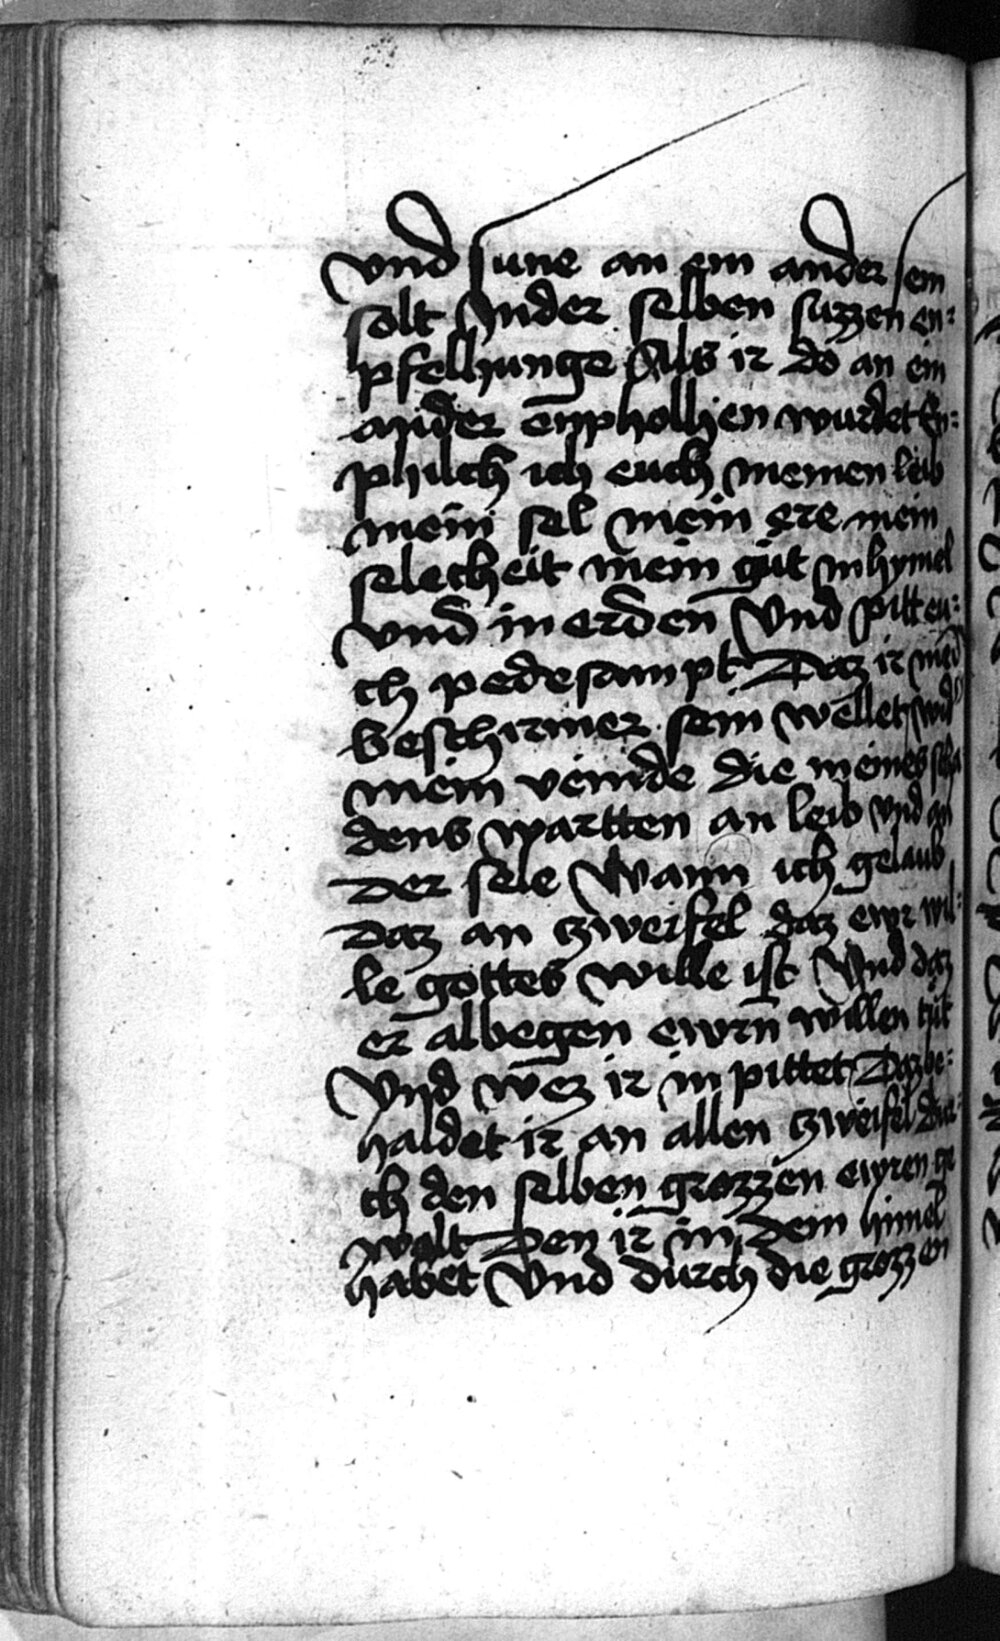 vnd sune an ein ander sein
solt Jnder selben suzzen en:
pfelhunge Als ir do an ein
ander enpholhen wurdet En:
philch ich euch meinen leib
mein sel mein ere mein
selecheit mein gut in hymel
vnd in erden Vnd pitt eu:
ch pedesampt Daz ir mein
beschirmer sein wellet wid
mein veinde die meines scha
dens wartten an leib vnd an
Der sele Wann ich gelaub
Daz an zweifel daz ewr wil:
le gottes wille ist Vnd daz
er albegen ewrn willen tut
Vnd wez ir in pittet Daz be:
haldet ir an allen zweifel dur
ch den selben grozzen ewren ge
walt Den ir in dem himel
habet Vnd durch die grozzen